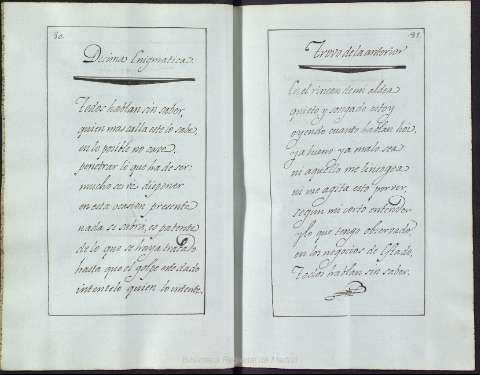 80.
Decima Enigmatica
Todos hablan sin saber,
quien mas calla este lo sabe
en lo posible no cave
penetrar lo que ha de ser:
mucho se ve disponer
en esta ocasion presente
nada se sabra, es patente
de lo que se haya tratado
hasta que el golpe este dado
intentelo quien lo intente.
81.
Trovo de la anterior
En el rincon de mi aldea
quieto y sosegado estoy
oyendo cuanto hablan hoi,
ya bueno ya malo sea
ni aquello me
ni me agita esto por ser,
segun mi corto entender
y lo que tengo observado
en los negocios de Estado,
Todos hablan sin saber.
Biblioteca Regional de Madrid